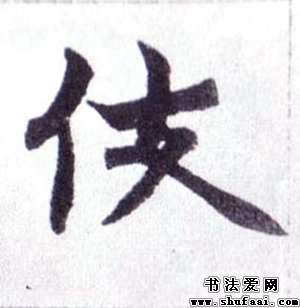 伎
书法爱网
www.shufaai.com